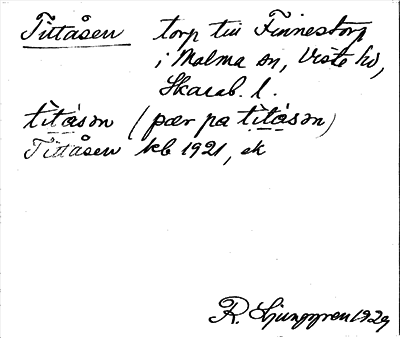 Tittåsen torp till Finnestorp
i Malma sn, Viste hd,
Skarab. l.
tìtásən (pær pa tìtásən)
Tittåsen kb 1921, ek
R. Ljunggren 1929